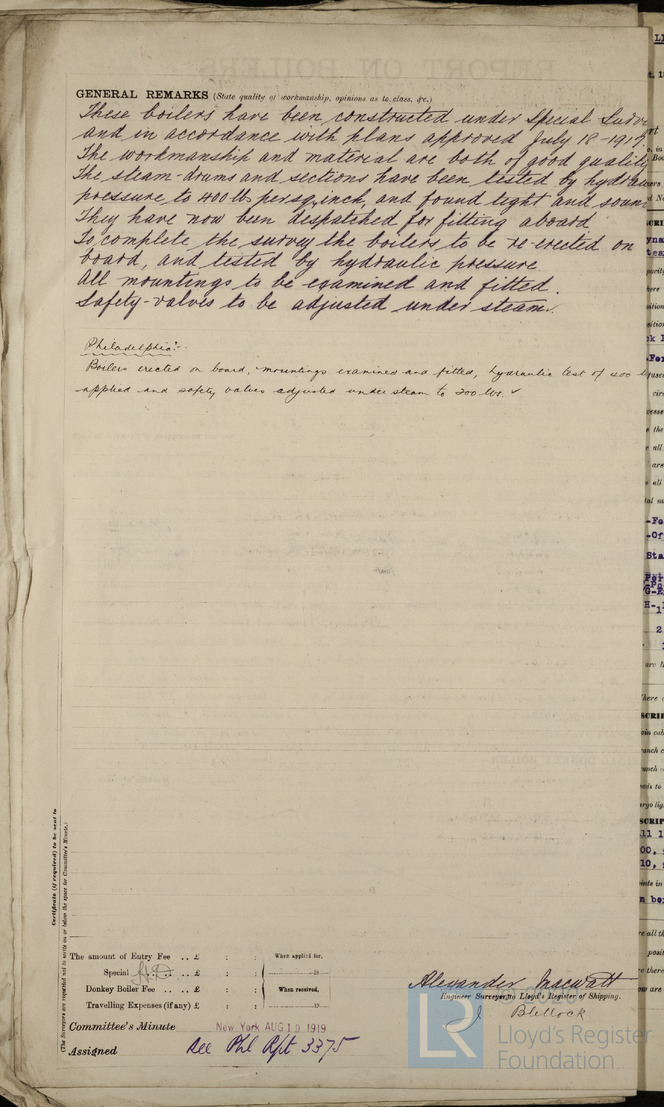 GENERAL REMARKS (State quality of workmanship, opinions as to class, &c.)
These boilers have been constructed under Special Surve
and in accordance with plans approved July 18-1919.
The workmanship and material are both of good qualit
The steam-drums and sections have been tested by hydrau
pressure to 400 lb per sq. inch, and found tight and soun
They have now been despatched for fitting aboard
To complete the survey the boilers to be re-erected on
board, and tested by hydraulic pressure.
All mountings to be examined and fitted.
Safety-valves to be adjusted under steam.
Philadelphia:-
Boilers erected on board, mountings examined and fitted, hydraulic test of 400 
applied and safety valves adjusted under steam to 200 lbs. ✓
Certificate (if required) to be sent to
(The Surveyors are requested not to write on or below the space for Committee's Minute.)
The amount of Entry Fee .. £ : : When applied for,
Special .. £ : : 19
Donkey Boiler Fee .. £ : : When received,
Travelling Expenses (if any) £ : : 19
Alexander Macwatt
Engineer Surveyor to Lloyd's Register of Shipping.
Committee's Minute New York AUG 19 1919
Assigned See Phl Rpt 3375
© 2020
LR
Lloyd's Register
Foundation